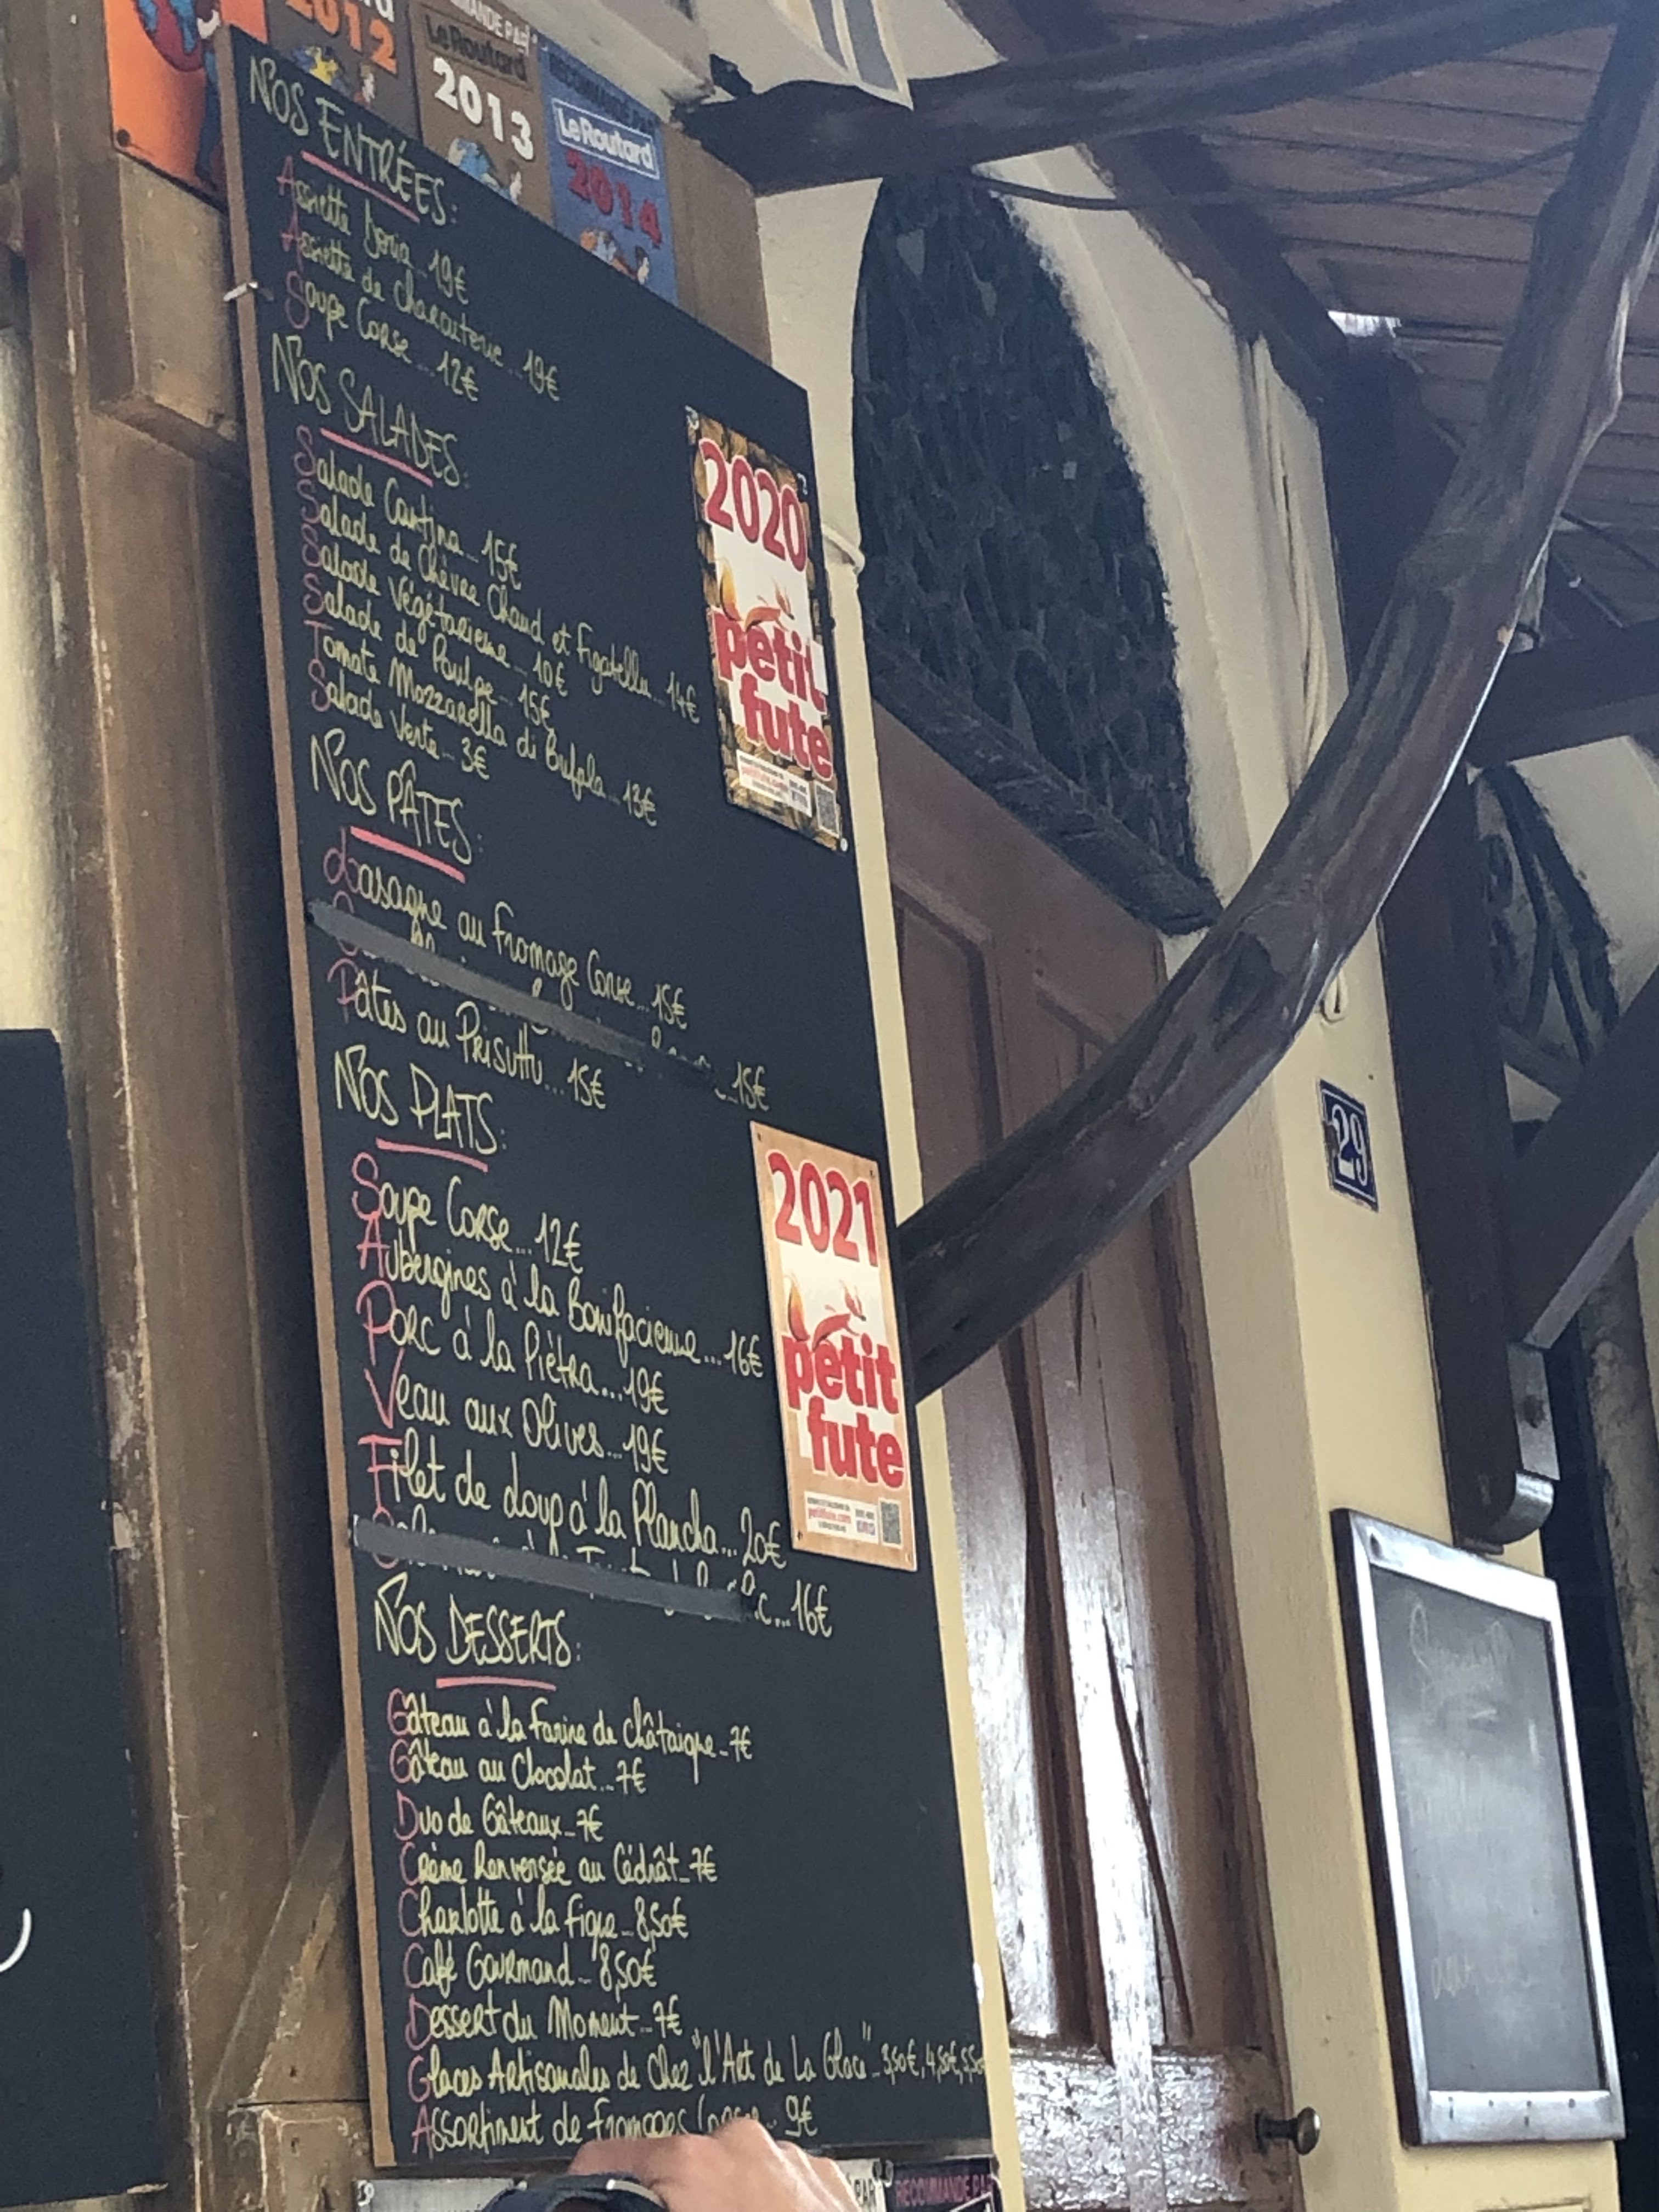 2012
Le Routard
2013
RECOMMANDÉ PAR
Le Routard
2014
NOS ENTRÉES:
Assiette Doria...19€
Assiette de charcuterie...19€
Soupe Corse...12€
NOS SALADES:
Salade Cantina...15€
Salade de Chèvre Chaud et Figatellu...14€
Salade Végétarienne...10€
Salade de Poulpe...15€
Tomate Mozzarella di Bufala...13€
Salade Verte...3€
2020
petit
fute
NOS PÂTES:
Lasagne au Fromage Corse...15€
...15€
Pâtes au Prisuttu...15€
NOS PLATS:
Soupe Corse...12€
Aubergines à la Bonifacienne...16€
Porc à la Piètra...19€
Veau aux Olives...19€
Filet de Loup à la Plancha...20€
...16€
2021
petit
fute
petitfute.com
NOS DESSERTS:
Gâteau à la Farine de Châtaigne...7€
Gâteau au Chocolat...7€
Duo de Gâteaux...7€
Crème Renversée au Cédrât...7€
Charlotte à la Figue...8,50€
Café Gourmand...8,50€
Dessert du Moment...7€
Glaces Artisanales de Chez "l'Art de La Glace"...3,50€, 4,50€, 5,50
Assortiment de Fromages Corse...9€
RECOMMANDÉ PAR
29